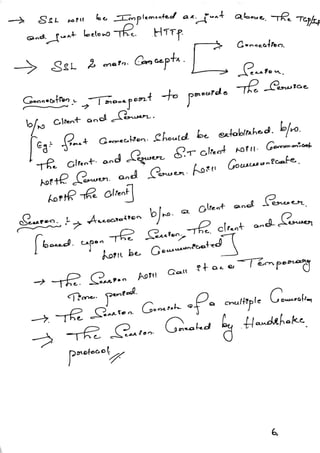 → SSL will be Implemented as just above The TCP/IP
and just below The HTTP.
→ SSL 2 main Concepts. → Connection.
→ Session.
Connection :- → Transport to provide The Service
b/w Client and Server.
[Eg: First Connection Should be established. b/w.
The Client and Server S.T Client will Communicate
with Server and Server will Communicate.
with The Client]
Session :- → Association b/w. a Client and Server
[based upon The Session, The client and Server
will be Communicated]
→ The Session will Call it as a Temporary
Time period.
→ The Session Consists of a multiple Connection
→ The Session Created by Handshake
protocol
6